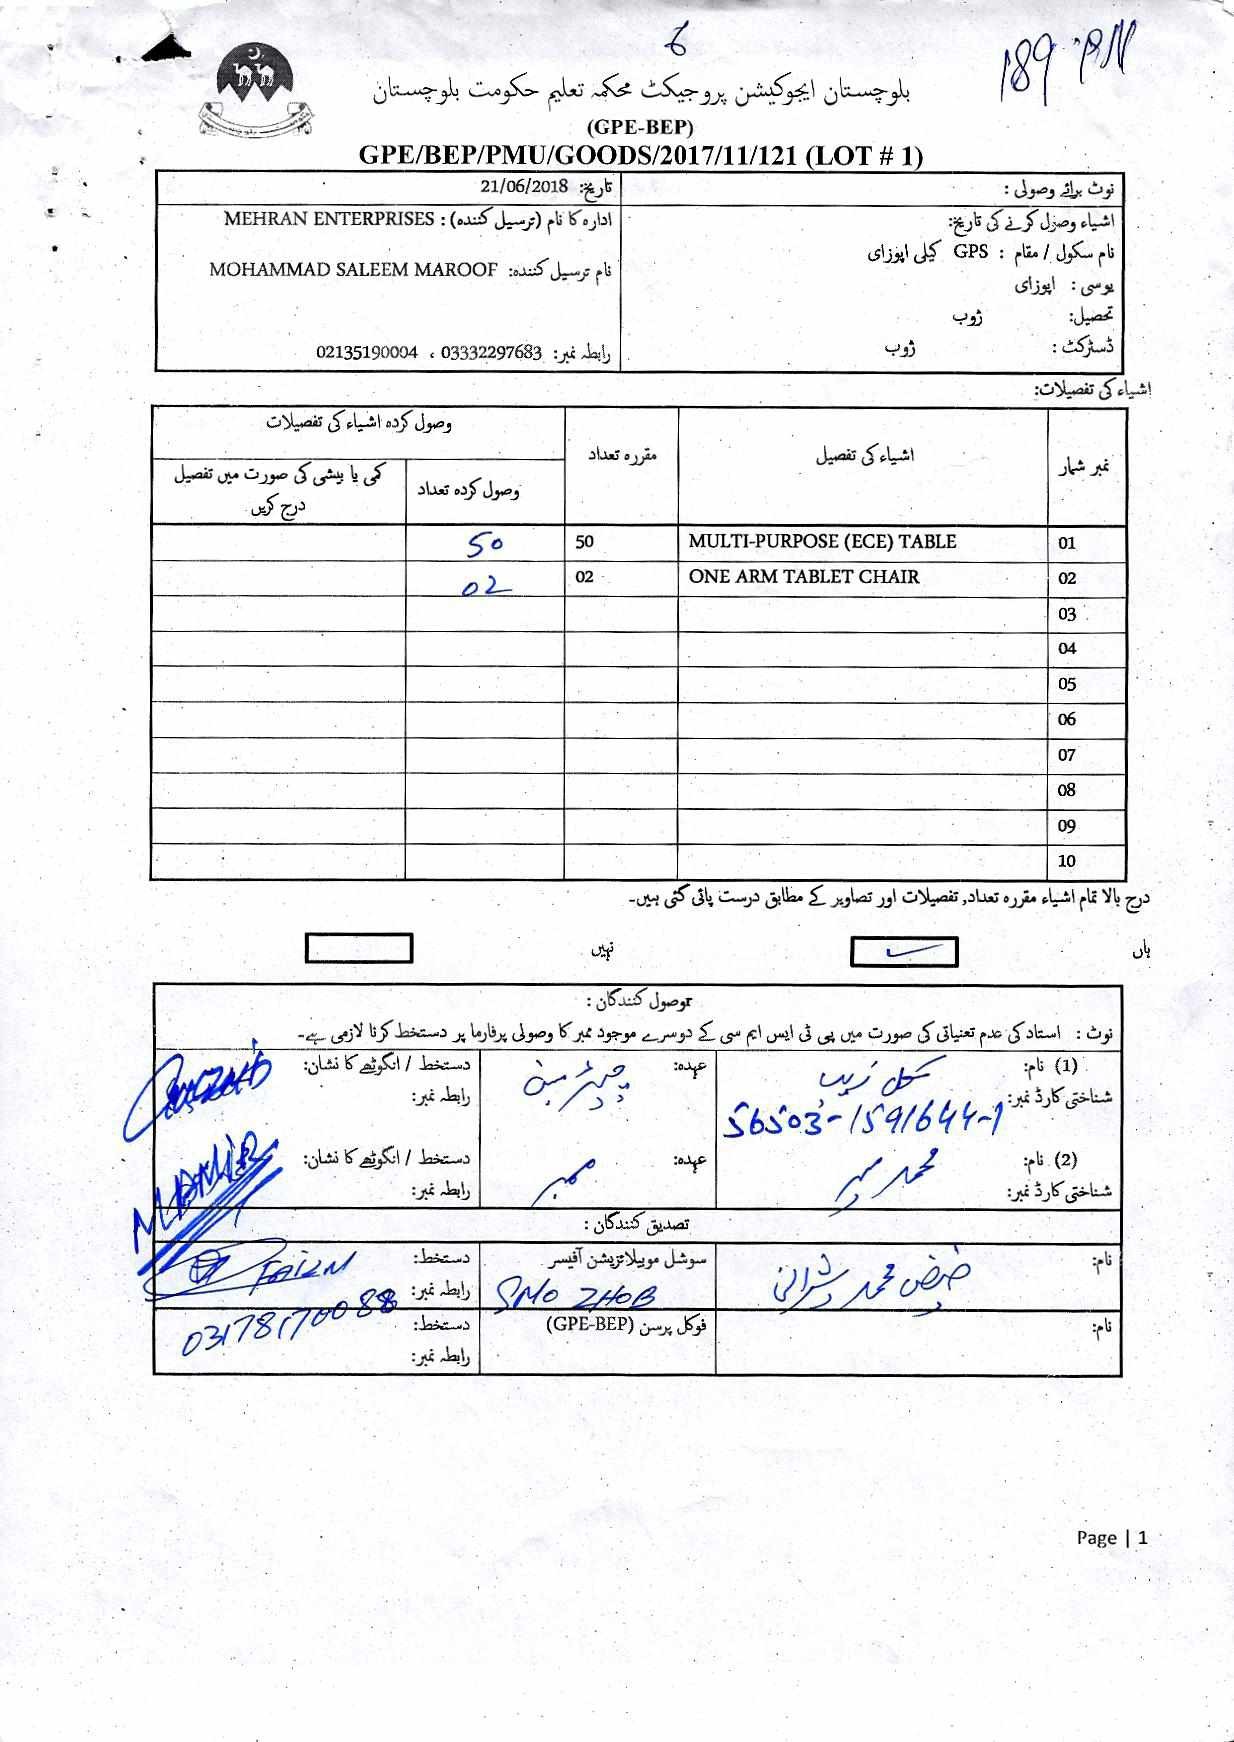 6
189
بلوچستان ایجوکیشن پروجیکٹ محکمہ تعلیم حکومت بلوچستان
(GPE-BEP)
GPE/BEP/PMU/GOODS/2017/11/121 (LOT # 1)
نوٹ برائے وصولی :
تاریخ: 21/06/2018
اشیاء وصول کرنے کی تاریخ:
نام سکول / مقام : GPS کیلی اپوزای
یوسی : اپوزای
تحصیل: ژوب
ڈسٹرکٹ : ژوب
ادارہ کا نام (ترسیل کنندہ) : MEHRAN ENTERPRISES
نام ترسیل کنندہ: MOHAMMAD SALEEM MAROOF
رابطہ نمبر: 03332297683 ، 02135190004
اشیاء کی تفصیلات:
نمبر شمار اشیاء کی تفصیل مقررہ تعداد وصول کردہ اشیاء کی تفصیلات
وصول کردہ تعداد کمی یا بیشی کی صورت میں تفصیل
درج کریں
01 MULTI-PURPOSE (ECE) TABLE 50 50
02 ONE ARM TABLET CHAIR 02 02
03
04
05
06
07
08
09
10
درج بالا تمام اشیاء مقررہ تعداد, تفصیلات اور تصاویر کے مطابق درست پائی گئی ہیں۔
ہاں نہیں
rوصول کنندگان :
نوٹ : استاد کی عدم تعنیاتی کی صورت میں پی ٹی ایس ایم سی کے دوسرے موجود ممبر کا وصولی پرفارما پر دستخط کرنا لازمی ہے۔
(1) نام: گل زیب عہدہ: چیئرمین دستخط / انگوٹھے کا نشان:
شناختی کارڈ نمبر: 56503-1591644-1 رابطہ نمبر:
(2) نام: محمد میر عہدہ: ممبر دستخط / انگوٹھے کا نشان: M.AMIR
شناختی کارڈ نمبر: رابطہ نمبر:
تصدیق کنندگان :
نام: فیض محمد شیرانی سوشل موبیلائزیشن آفیسر دستخط: FAIZM
SMO ZHOB رابطہ نمبر: 03178170088
نام: فوکل پرسن (GPE-BEP) دستخط:
رابطہ نمبر:
Page | 1